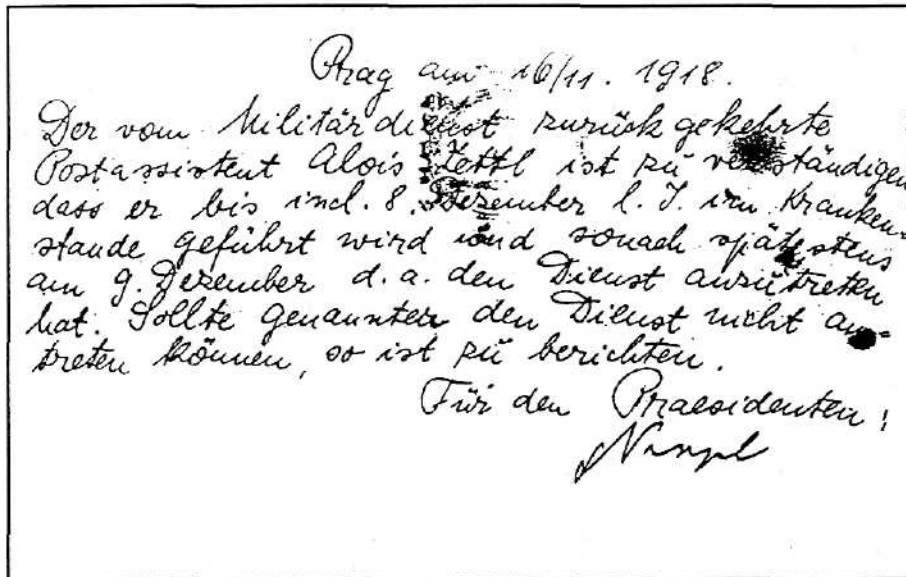 Prag am 16/11. 1918.
Der vom Militärdienst zurückgekehrte
Postassistent Alois Zettl ist zu verständigen
dass er bis incl. 8. Dezember l. J. im Kranken-
stande geführt wird und sonach spätestens
am 9. Dezember d. a. den Dienst anzutreten
hat. Sollte Genannter den Dienst nicht an-
treten können, so ist zu berichten.
Für den Praesidenten: